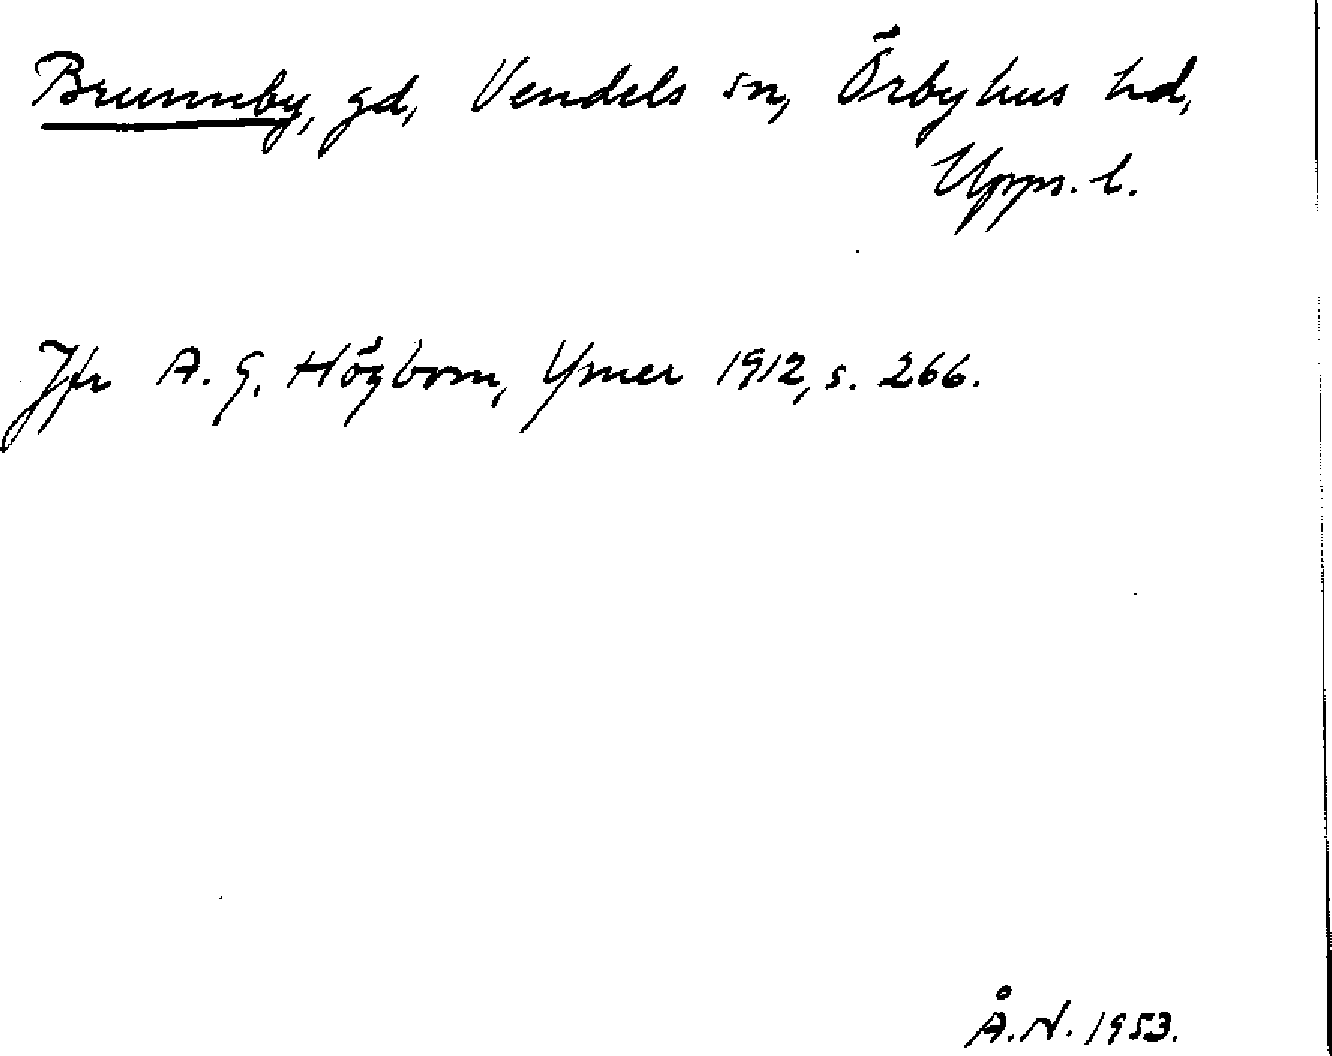 Brunnby, gd, Vendels sn, Örbyhus hd,
Upps. l.
Jfr A. G. Högbom, Ymer 1912, s. 266.
Å. N. 1953.